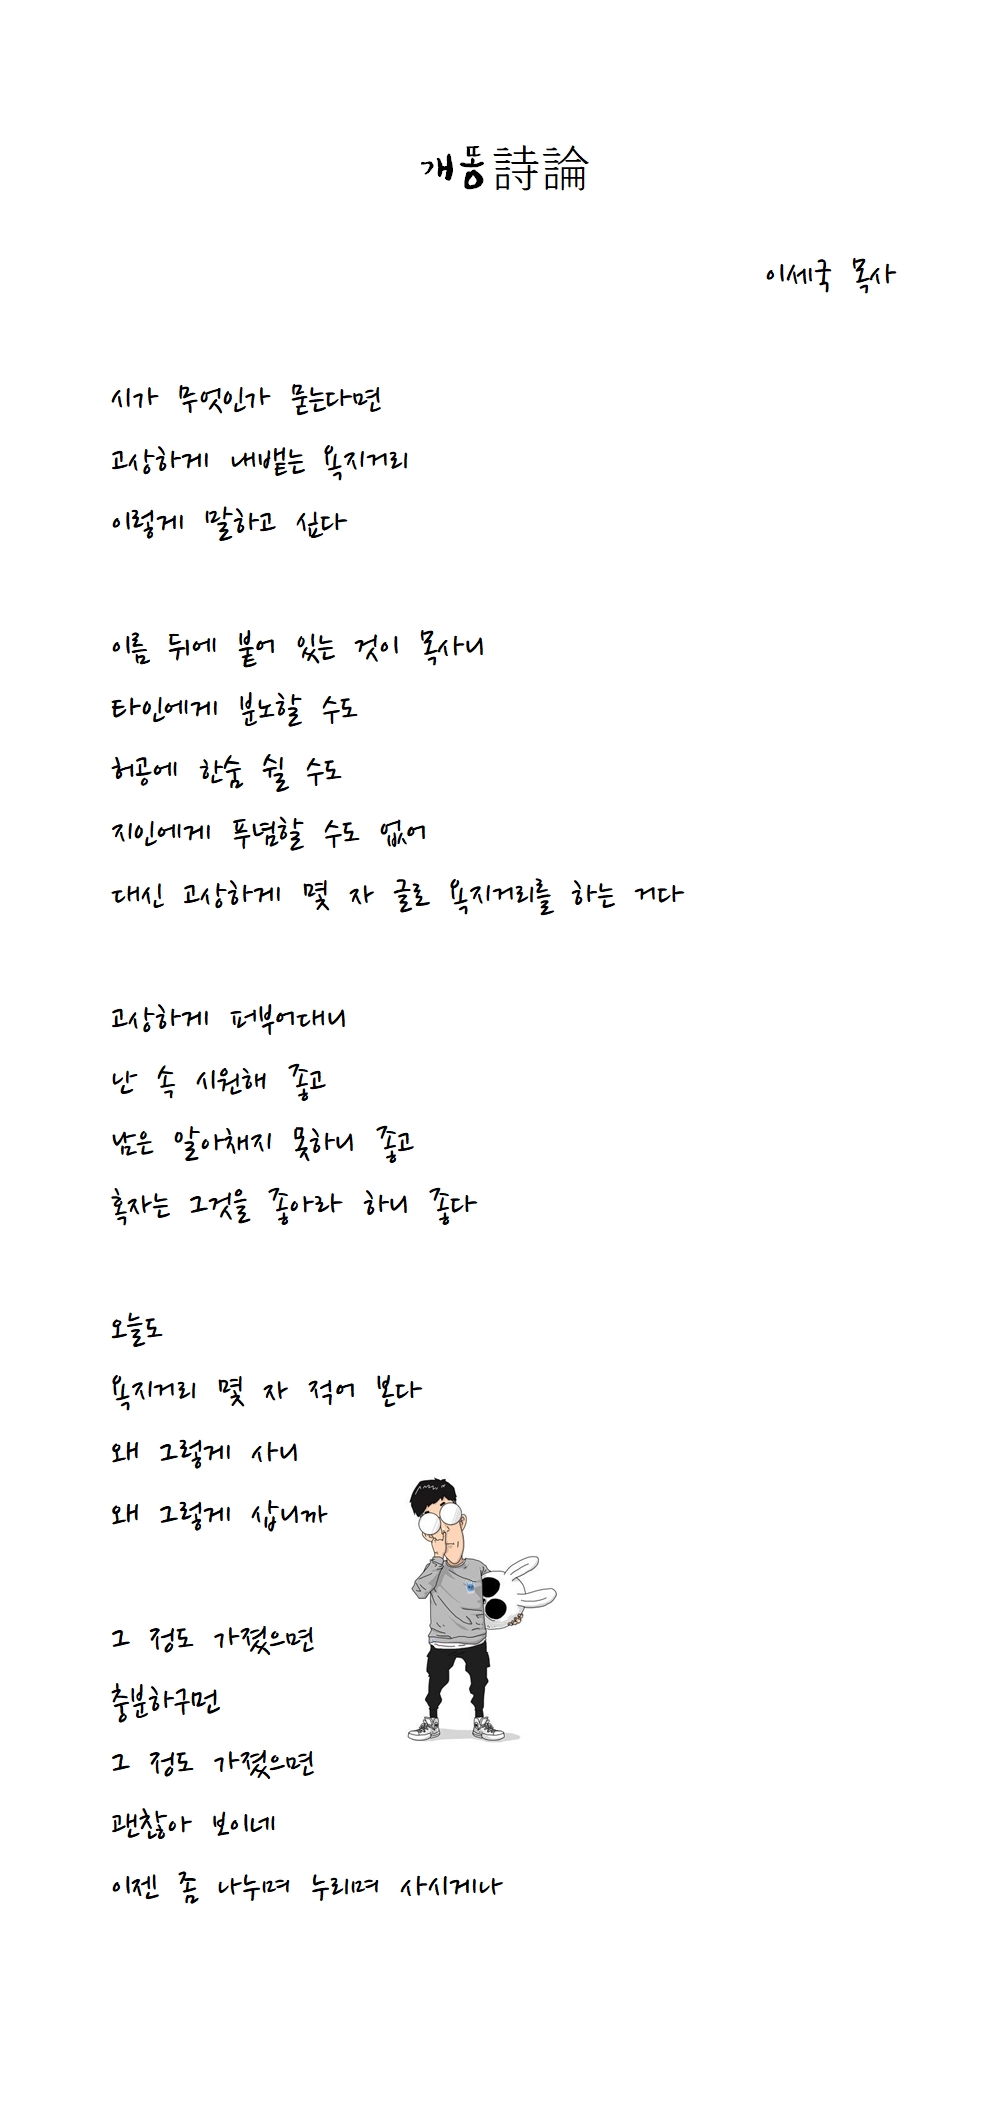 개똥詩論
이세국 목사
시가 무엇인가 묻는다면
고상하게 내뱉는 욕지거리
이렇게 말하고 싶다
이름 뒤에 붙어 있는 것이 목사니
타인에게 분노할 수도
허공에 한숨 쉴 수도
지인에게 푸념할 수도 없어
대신 고상하게 몇 자 글로 욕지거리를 하는 거다
고상하게 퍼부어대니
난 속 시원해 좋고
남은 알아채지 못하니 좋고
혹자는 그것을 좋아라 하니 좋다
오늘도
욕지거리 몇 자 적어 본다
왜 그렇게 사니
왜 그렇게 삽니까
그 정도 가졌으면
충분하구먼
그 정도 가졌으면
괜찮아 보이네
이젠 좀 나누며 누리며 사시게나